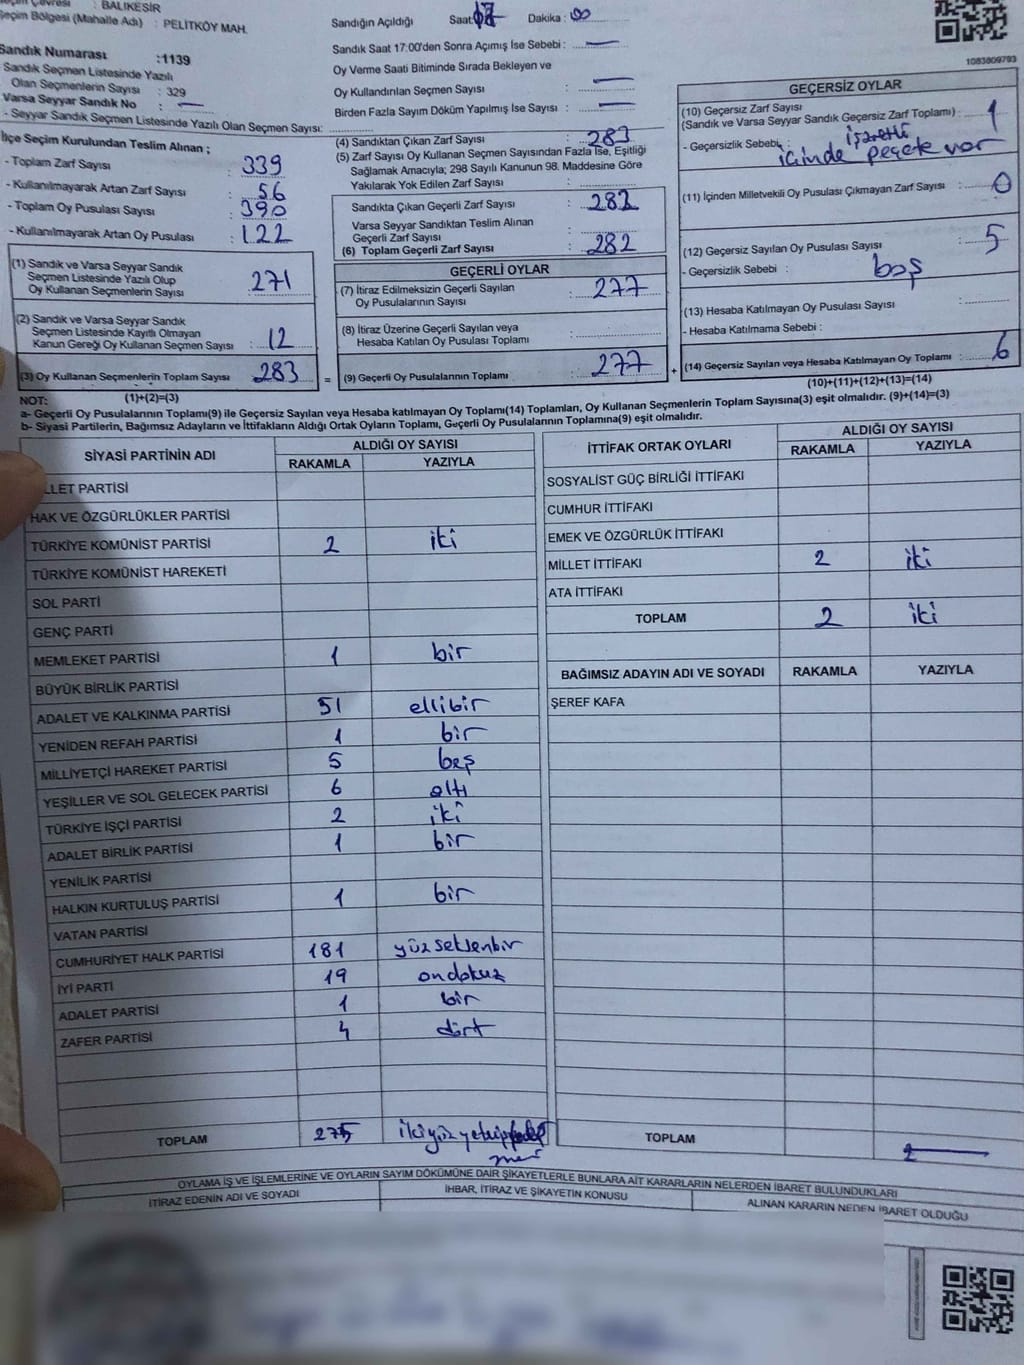 Seçim Çevresi : BALIKESİR
Seçim Bölgesi (Mahalle Adı) : PELİTKÖY MAH.
Sandık Numarası :1139
Sandık Seçmen Listesinde Yazılı
Olan Seçmenlerin Sayısı : 329
Varsa Seyyar Sandık No : —
- Seyyar Sandık Seçmen Listesinde Yazılı Olan Seçmen Sayısı:
Sandığın Açıldığı Saat: 17 Dakika : 00
Sandık Saat 17:00'den Sonra Açımış İse Sebebi : —
Oy Verme Saati Bitiminde Sırada Bekleyen ve
Oy Kullandırılan Seçmen Sayısı : —
Birden Fazla Sayım Döküm Yapılmış İse Sayısı : —
1083809793
İlçe Seçim Kurulundan Teslim Alınan ;
- Toplam Zarf Sayısı : 339
- Kullanılmayarak Artan Zarf Sayısı : 56
- Toplam Oy Pusulası Sayısı : 390
- Kullanılmayarak Artan Oy Pusulası : 122
(1) Sandık ve Varsa Seyyar Sandık
Seçmen Listesinde Yazılı Olup
Oy Kullanan Seçmenlerin Sayısı : 271
(2) Sandık ve Varsa Seyyar Sandık
Seçmen Listesinde Kayıtlı Olmayan
Kanun Gereği Oy Kullanan Seçmen Sayısı : 12
(3) Oy Kullanan Seçmenlerin Toplam Sayısı 283
(1)+(2)=(3)
(4) Sandıktan Çıkan Zarf Sayısı : 283
(5) Zarf Sayısı Oy Kullanan Seçmen Sayısından Fazla İse, Eşitliği
Sağlamak Amacıyla; 298 Sayılı Kanunun 98. Maddesine Göre
Yakılarak Yok Edilen Zarf Sayısı :
Sandıkta Çıkan Geçerli Zarf Sayısı : 282
Varsa Seyyar Sandıktan Teslim Alınan
Geçerli Zarf Sayısı :
(6) Toplam Geçerli Zarf Sayısı : 282
GEÇERLİ OYLAR
(7) İtiraz Edilmeksizin Geçerli Sayılan
Oy Pusulalarının Sayısı : 277
(8) İtiraz Üzerine Geçerli Sayılan veya
Hesaba Katılan Oy Pusulası Toplamı :
= (9) Geçerli Oy Pusulalarının Toplamı : 277 +
GEÇERSİZ OYLAR
(10) Geçersiz Zarf Sayısı
(Sandık ve Varsa Seyyar Sandık Geçersiz Zarf Toplamı) : 1
- Geçersizlik Sebebi : işaretli
içinde peçete var
(11) İçinden Milletvekili Oy Pusulası Çıkmayan Zarf Sayısı : 0
(12) Geçersiz Sayılan Oy Pusulası Sayısı : 5
- Geçersizlik Sebebi : boş
(13) Hesaba Katılmayan Oy Pusulası Sayısı :
- Hesaba Katılmama Sebebi :
(14) Geçersiz Sayılan veya Hesaba Katılmayan Oy Toplamı : 6
(10)+(11)+(12)+(13)=(14)
NOT:
a- Geçerli Oy Pusulalarının Toplamı(9) ile Geçersiz Sayılan veya Hesaba katılmayan Oy Toplamı(14) Toplamları, Oy Kullanan Seçmenlerin Toplam Sayısına(3) eşit olmalıdır. (9)+(14)=(3)
b- Siyasi Partilerin, Bağımsız Adayların ve İttifakların Aldığı Ortak Oyların Toplamı, Geçerli Oy Pusulalarının Toplamına(9) eşit olmalıdır.
SİYASİ PARTİNİN ADI ALDIĞI OY SAYISI
RAKAMLA YAZIYLA
LLET PARTİSİ
HAK VE ÖZGÜRLÜKLER PARTİSİ
TÜRKİYE KOMÜNİST PARTİSİ 2 iki
TÜRKİYE KOMÜNİST HAREKETİ
SOL PARTİ
GENÇ PARTİ
MEMLEKET PARTİSİ 1 bir
BÜYÜK BİRLİK PARTİSİ
ADALET VE KALKINMA PARTİSİ 51 ellibir
YENİDEN REFAH PARTİSİ 1 bir
MİLLİYETÇİ HAREKET PARTİSİ 5 beş
YEŞİLLER VE SOL GELECEK PARTİSİ 6 altı
TÜRKİYE İŞÇİ PARTİSİ 2 iki
ADALET BİRLİK PARTİSİ 1 bir
YENİLİK PARTİSİ
HALKIN KURTULUŞ PARTİSİ 1 bir
VATAN PARTİSİ
CUMHURİYET HALK PARTİSİ 181 yüzseksenbir
İYİ PARTİ 19 ondokuz
ADALET PARTİSİ 1 bir
ZAFER PARTİSİ 4 dört
TOPLAM 275
İTTİFAK ORTAK OYLARI ALDIĞI OY SAYISI
RAKAMLA YAZIYLA
SOSYALİST GÜÇ BİRLİĞİ İTTİFAKI
CUMHUR İTTİFAKI
EMEK VE ÖZGÜRLÜK İTTİFAKI
MİLLET İTTİFAKI 2 iki
ATA İTTİFAKI
TOPLAM 2 iki
BAĞIMSIZ ADAYIN ADI VE SOYADI RAKAMLA YAZIYLA
ŞEREF KAFA
TOPLAM 2 —
OYLAMA İŞ VE İŞLEMLERİNE VE OYLARIN SAYIM DÖKÜMÜNE DAİR ŞİKAYETLERLE BUNLARA AİT KARARLARIN NELERDEN İBARET BULUNDUKLARI
İTİRAZ EDENİN ADI VE SOYADI İHBAR, İTİRAZ VE ŞİKAYETİN KONUSU ALINAN KARARIN NEDEN İBARET OLDUĞU